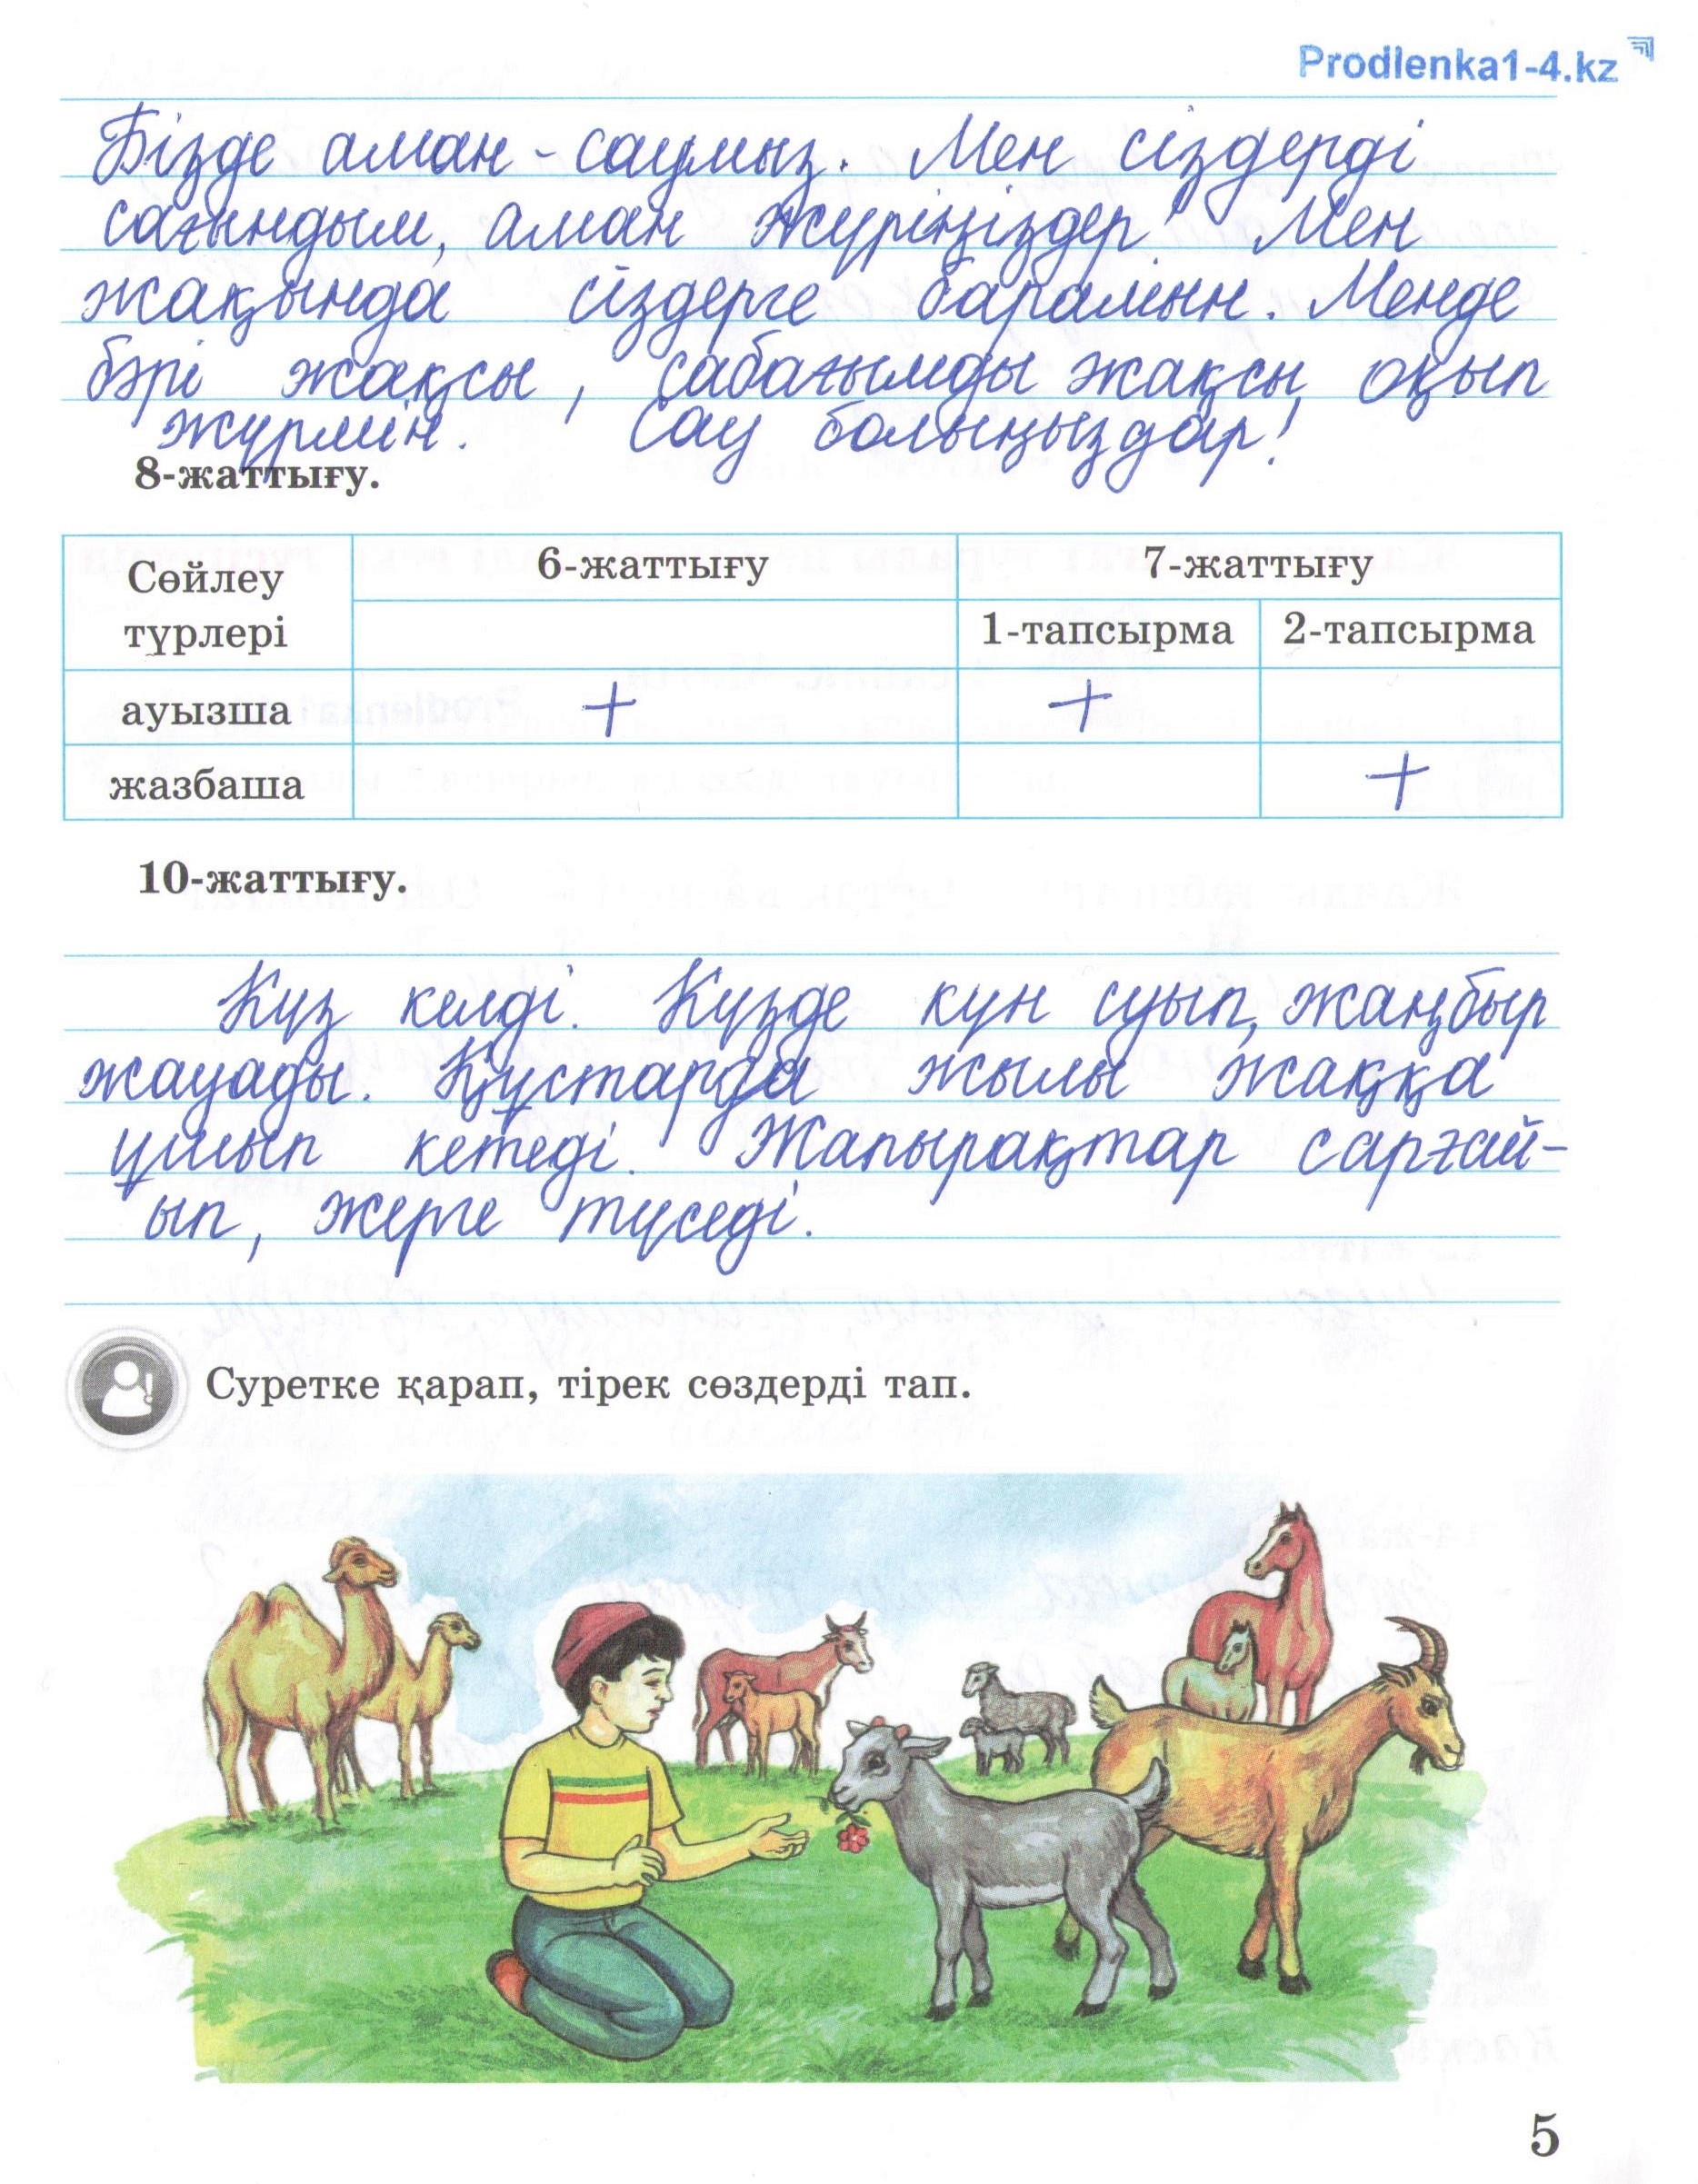 Prodlenka1-4.kz
Бізде аман-саумыз. Мен сіздерді
сағындым, аман жүріңіздер! Мен
жақында сіздерге барамын. Менде
бәрі жақсы, сабағымды жақсы оқып
жүрмін. Сау болыңыздар!
8-жаттығу.
Сөйлеу түрлері 6-жаттығу 7-жаттығу
1-тапсырма 2-тапсырма
ауызша + +
жазбаша +
10-жаттығу.
Күз келді. Күзде күн суып, жаңбыр
жауады. Құстарда жылы жаққа
ұшып кетеді. Жапырақтар сарғай-
ып, жерге түседі.
Суретке қарап, тірек сөздерді тап.
5